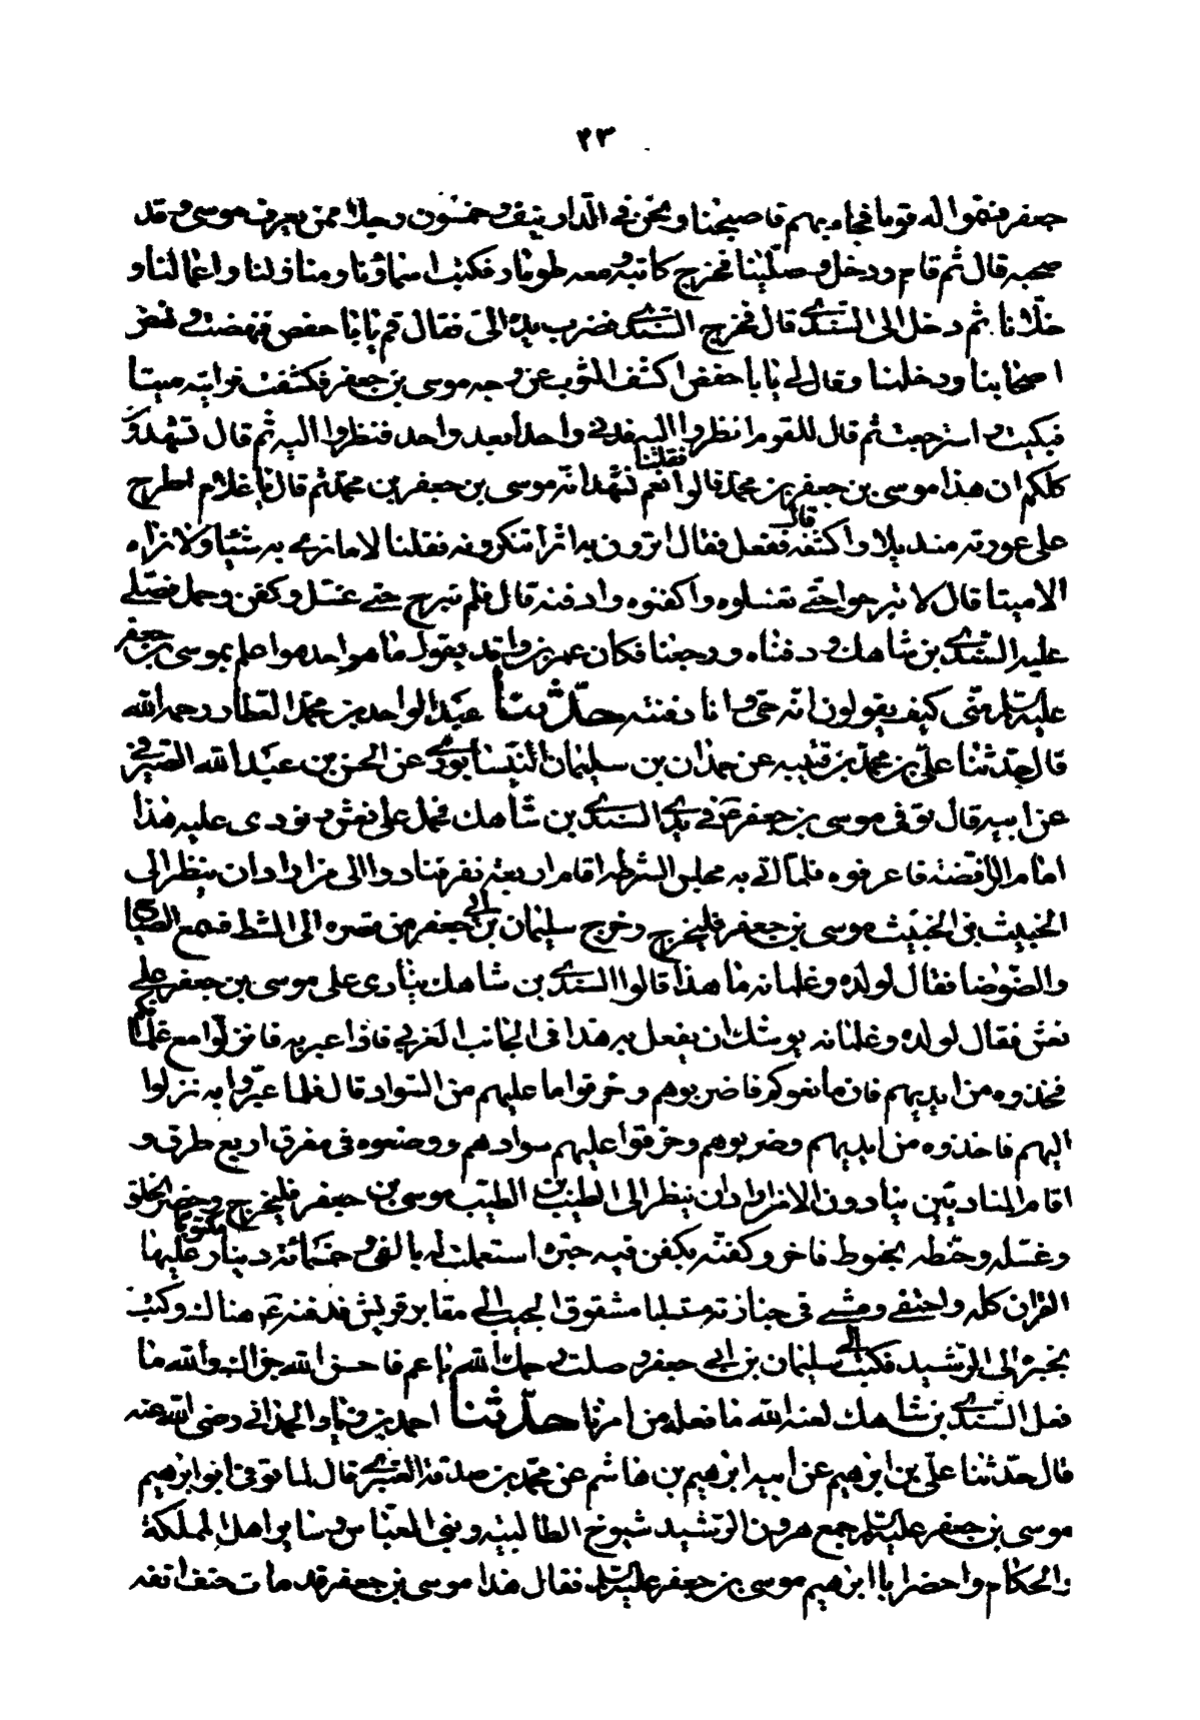 ٢٣
جعفر فنقموا له قوما فجاء بهم فاصبحنا ونحن في الدار نيف وخمسون رجلا ممن يعرف موسى وقد
صحبه قال ثم قام ودخل وصلينا فخرج كاتبه ومعه طومار فكتب اسماؤنا ومنازلنا واعمالنا و
حلانا ثم دخل الى السندي قال فخرج السندي فضرب يده الي فقال قم يا با حفص فنهضت ونهض
اصحابنا ودخلنا وقال لي يا با حفص اكشف الثوب عن وجه موسى بن جعفر فكشفت فرايته ميتا
فبكيت واسترجعت ثم قال للقوم انظروا اليه فدنى واحدا بعد واحد فنظروا اليه ثم قال تشهدون
كلكم ان هذا موسى بن جعفر بن محمد قالوا فقلنا نعم نشهد انه موسى بن جعفر بن محمد ثم قال يا غلام اطرح
على عورته منديلا واكشفه قال ففعل فقال اترون به اثرا تنكرونه فقلنا لا ما نرى به شيئا ولا نراه
الا ميتا قال لا تبرحوا حتى تغسلوه واكفنوه وادفنه قال فلم نبرح حتى غسل وكفن وحمل فصلى
عليه السندي بن شاهك ودفناه ورجعنا فكان عمر بن واقد يقول ما هو احد هو اعلم بموسى بن جعفر
عليه السلام مني كيف يقولون انه حي وانا دفنته حدثنا عبد الواحد بن محمد العطار رحمه الله
قال حدثنا علي بن محمد بن قتيبه عن حمدان بن سليمان النيسابوري عن الحسن بن عبد الله الصيرفي
عن ابيه قال توفى موسى بن جعفر ع في يدي السندي بن شاهك فحمل على نعش ونودى عليه هذا
امام الرافضه فاعرفوه فلما اتي به مجلس الشرطه اقام اربعة نفر فنادوا الى من اراد ان ينظر الى
الخبيث بن الخبيث موسى بن جعفر فليخرج وخرج سليمان بن ابي جعفر من قصره الى الشط فسمع الصياح
والضوضا فقال لولده وغلمانه ما هذا قالوا السندي بن شاهك ينادى على موسى بن جعفر على
نعش فقال لولده وغلمانه يوشك ان يفعل به هذا في الجانب الغربي فاذا عبر به فانزلوا مع غلمانكم
فخذوه من ايديهم فان مانعوكم فاضربوهم وخرقوا ما عليهم من السواد قال فلما عبروا به نزلوا
اليهم فاخذوه من ايديهم وضربوهم وخرقوا عليهم سوادهم ووضعوه في مفرق اربع طرق و
اقام المنادين ينادون الا من اراد ان ينظر الى الطيب بن الطيب موسى بن جعفر فليخرج وحضر الخلق
وغسله وحنطه بحنوط فاخر وكفنه بكفن فيه حبرة استعملت له بالفي وخمسمائة دينار مكتوبا عليها
القران كله واحتفى ومشى في جنازته متسلبا مشقوق الجيب الى مقابر قريش فدفنه ع هنالك وكتب
بخبره الى الرشيد فكتب الى سليمان بن ابي جعفر وصلت رحمك الله يا عم فاحسن الله جزاك والله ما
فعل السندي بن شاهك لعنه الله ما فعله من امرنا حدثنا احمد بن زياد الهمداني رضى الله عنه
قال حدثنا علي بن ابرهيم عن ابيه ابرهيم بن هاشم عن محمد بن صدقة العنبري قال لما توفى ابو ابرهيم
موسى بن جعفر عليه السلام جمع هرون الرشيد شيوخ الطالبيه وبني العباس وساير اهل المملكة
والحكام واحضر ابا ابرهيم موسى بن جعفر عليه السلام فقال هذا موسى بن جعفر قد مات حتف انفه